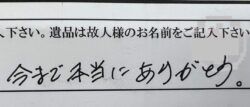 入下さい。遺品は故人様のお名前をご記入下さい
今まで本当にありがとう。